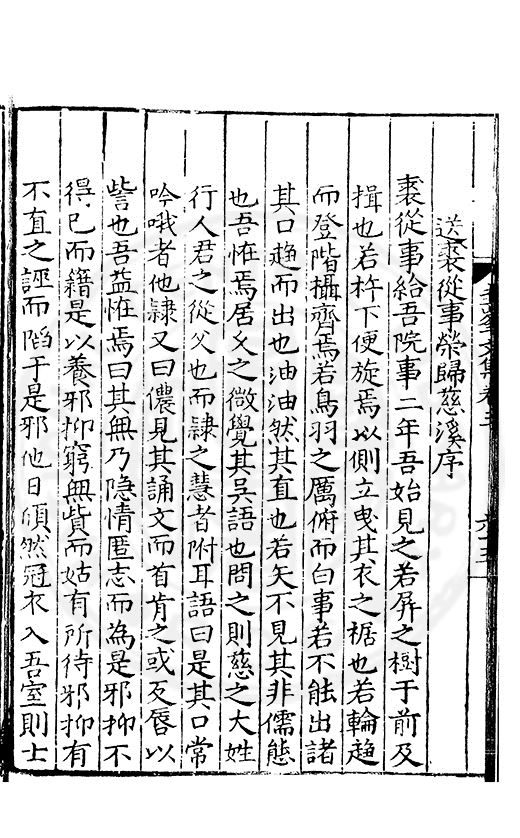 送裘從事榮歸慈溪序
裘從事給吾院事二年吾始見之若屏之樹于前及
揖也若杵下便旋焉以側立曳其衣之裾也若輪趨
而登階攝齊焉若鳥羽之厲俯而白事若不能出諸
其口趨而出也油油然其直也若矢不見其非儒態
也吾恠焉居久之微覺其吳語也問之則慈之大姓
行人君之從父也而隸之慧者附耳語曰是其口常
吟哦者他隸又曰儂見其誦文而首肯之或反唇以
訾也吾益恠焉曰其無乃隐情匿志而為是邪抑不
得已而籍是以養邪抑窮無貲而姑有所待邪抑有
不直之誣而陷于是邪他日頎然冠衣入吾室則士